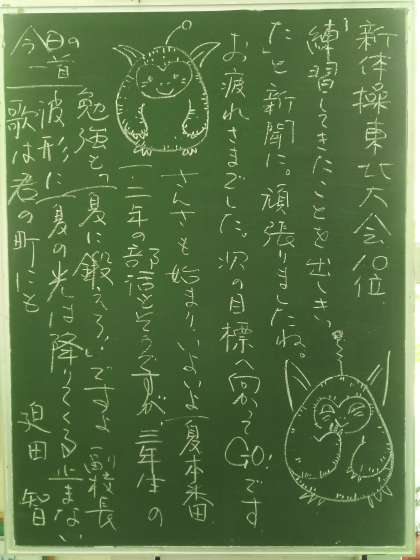 新体操東北大会10位
「練習してきたことを出しきっ
た」と新聞に。頑張りましたね。
お疲れさまでした。次の目標へ向かってGO!です
さんさも始まり、いよいよ「夏本番
一・二年の部活もそうですが、三年生の
勉強も。「夏に鍛えろ!」ですよ 副校長
今日の一首
波形に 夏の光は降りてくる 止まない
歌は君の町にも 迫田 智